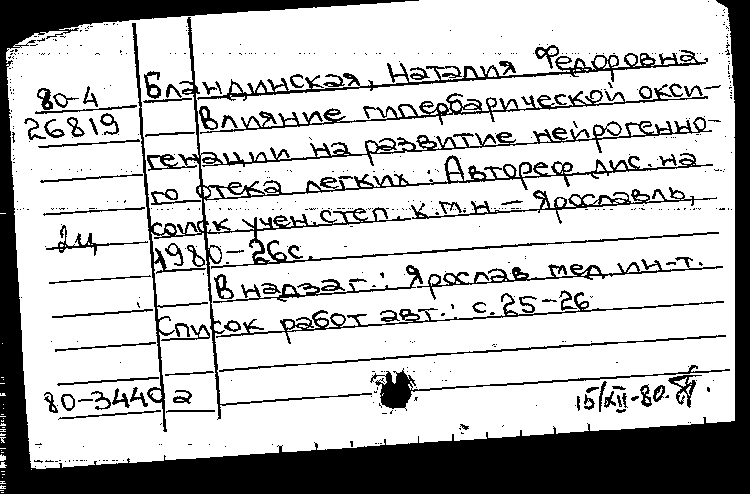 80-4
26819
Бландинская, Наталия Федоровна.
Влияние гипербарической окси-
генации на развитие нейрогенно-
го отека легких : Автореф дис. на
соиск учен. степ. к.м.н. – Ярославль,
1980. – 26с.
2ц
В надзаг.: Ярослав мед ин-т.
Список работ авт.: с. 25-26
80-3440 а
15/XII-80.